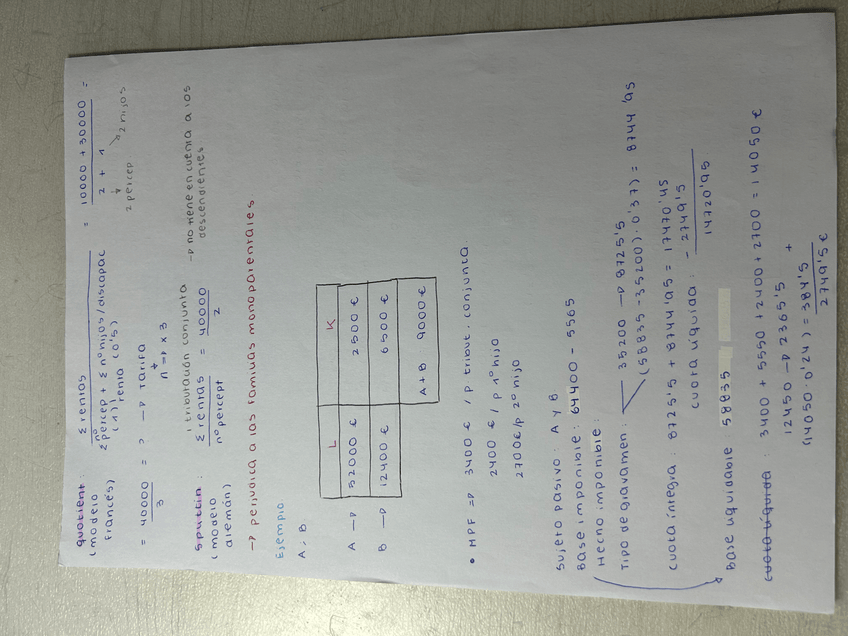 quotient: Σ rentas = 10000 + 30000 =
(modelo francés) Σ nº percep + Σ nº hijos/discapac 2 + 1
(1) renta (0'5) 2 percep 2 hijos
= 40000 = > → Tarifa
3 n → x 3
splittin: tributación conjunta
(modelo alemán) Σ rentas = 40000 → no tiene en cuenta a los descendientes
nº percept 2
→ perjudica a las familias monoparentales
Ejemplo
A, B
L K
A → 52000 € 2500 €
B → 12400 € 6500 €
A + B 9000 €
• MPF => 3400 € / p tribut. conjunta
2400 € / p 1º hijo
2700€/p 2º hijo
Sujeto pasivo: A y B
Base imponible: 64400 - 5565
Hecho imponible:
Tipo de gravamen: 35200 → 8725'5
(58835 - 35200) · 0'37) = 8744'95
cuota íntegra: 8725'5 + 8744'95 = 17470'45
cuota líquida: - 2749'5
14720'95
Base liquidable: 58835
cuota líquida: 3400 + 5550 + 2400 + 2700 = 14050 €
12450 → 2365'5 +
(14050 · 0'24) = 384'5
2749'5 €